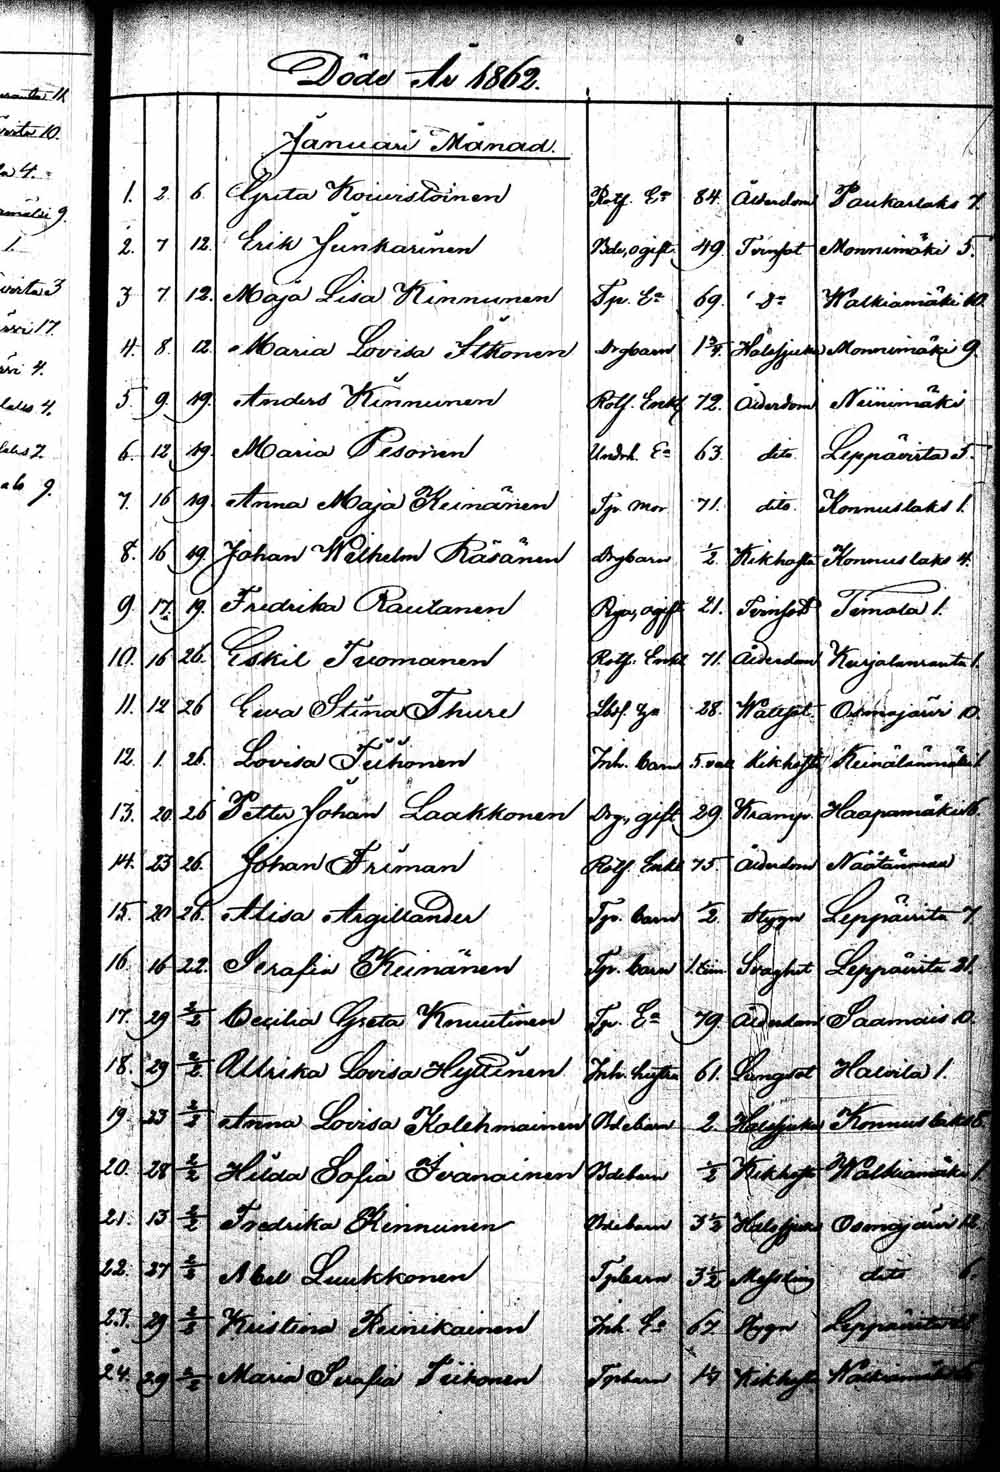 Döde År 1862.
Januari Månad.
1. 2. 6. Greta Koiuistoinen Rotf. Ea 84. Ålderdom Paukarlaks 7.
2. 7 12. Erik Junkarinen Bde, ogift. 49. Tvinsot Monnimäki 5.
3 7. 12. Maja Lisa Kinnunen Tp. Ea 69. Do Walkiamäki 10.
4. 8. 12. Maria Lovisa Itkonen Drgbarn 1 3/4. Halssjuka Monnimäki 9.
5. 9. 19. Anders Kinnunen Rotf. Enkl 72. Ålderdom Niinimäki
6. 12 19. Maria Pesoinen Undrh. Ea 63. dito Leppävirta 5.
7. 16 19. Anna Maja Keinänen Tp. mor 71. dito Konnuslaks 1.
8. 16 19. Johan Wilhelm Räsänen Drgbarn 1/2. Kikhosta Konnuslaks 4.
9. 17. 19. Fredrika Rautanen Piga, ogift 21. Tvinsot Timola 1.
10. 16 26. Eskil Tuomanen Rotf. Enkl 71. Ålderdom Kurjalanranta 1.
11. 12 26 Ewa Stina Thure 28. Wattsot. Osmajärvi 10.
12. 1. 26. Lovisa Tiihonen Inh. barn 5. Kikhosta Keinälänmäki 1.
13. 20. 26 Petter Johan Laakkonen Drg, gift 29. Kramp. Haapamäki 6.
14. 23 26. Johan Friman Rotf. Enkl 75. Ålderdom Näätänmaa
15. 20 26. Alisa Argillander Tp. barn 1/2. Slygn Leppävirta 7.
16. 16 22. Serafia Keinänen Tp. barn 1. tim Svaghet Leppävirta 21.
17. 29 2/2 Cecilia Greta Knuutinen Tp. Ea 79. Ålderdom Saamais 10.
18. 29 2/2. Ullrika Lovisa Hyttinen Inh. hustru 61. Lungsot Halvila 1.
19. 23 2/2 Anna Lovisa Kolehmainen Bdebarn 2. Halssjuka Konnuslaks 8.
20. 28 2/2 Hilda Sofia Ivanainen Bdebarn 1/2 Kikhosta Walkiamäki 1.
21. 13 2/2 Fredrika Kinnunen Bdebarn 3 1/2 Halssjuka Osmajärvi 12.
22. 27 2/2 Abel Luukkonen Tpbarn 3 1/2 Messling dito 6.
23. 29 2/2 Kristina Reinikainen Inh. Ea 67. Slygn Leppävirta
24. 29 2/2 Maria Serafia Tiihonen Tpbarn Kikhosta Walkiamäki